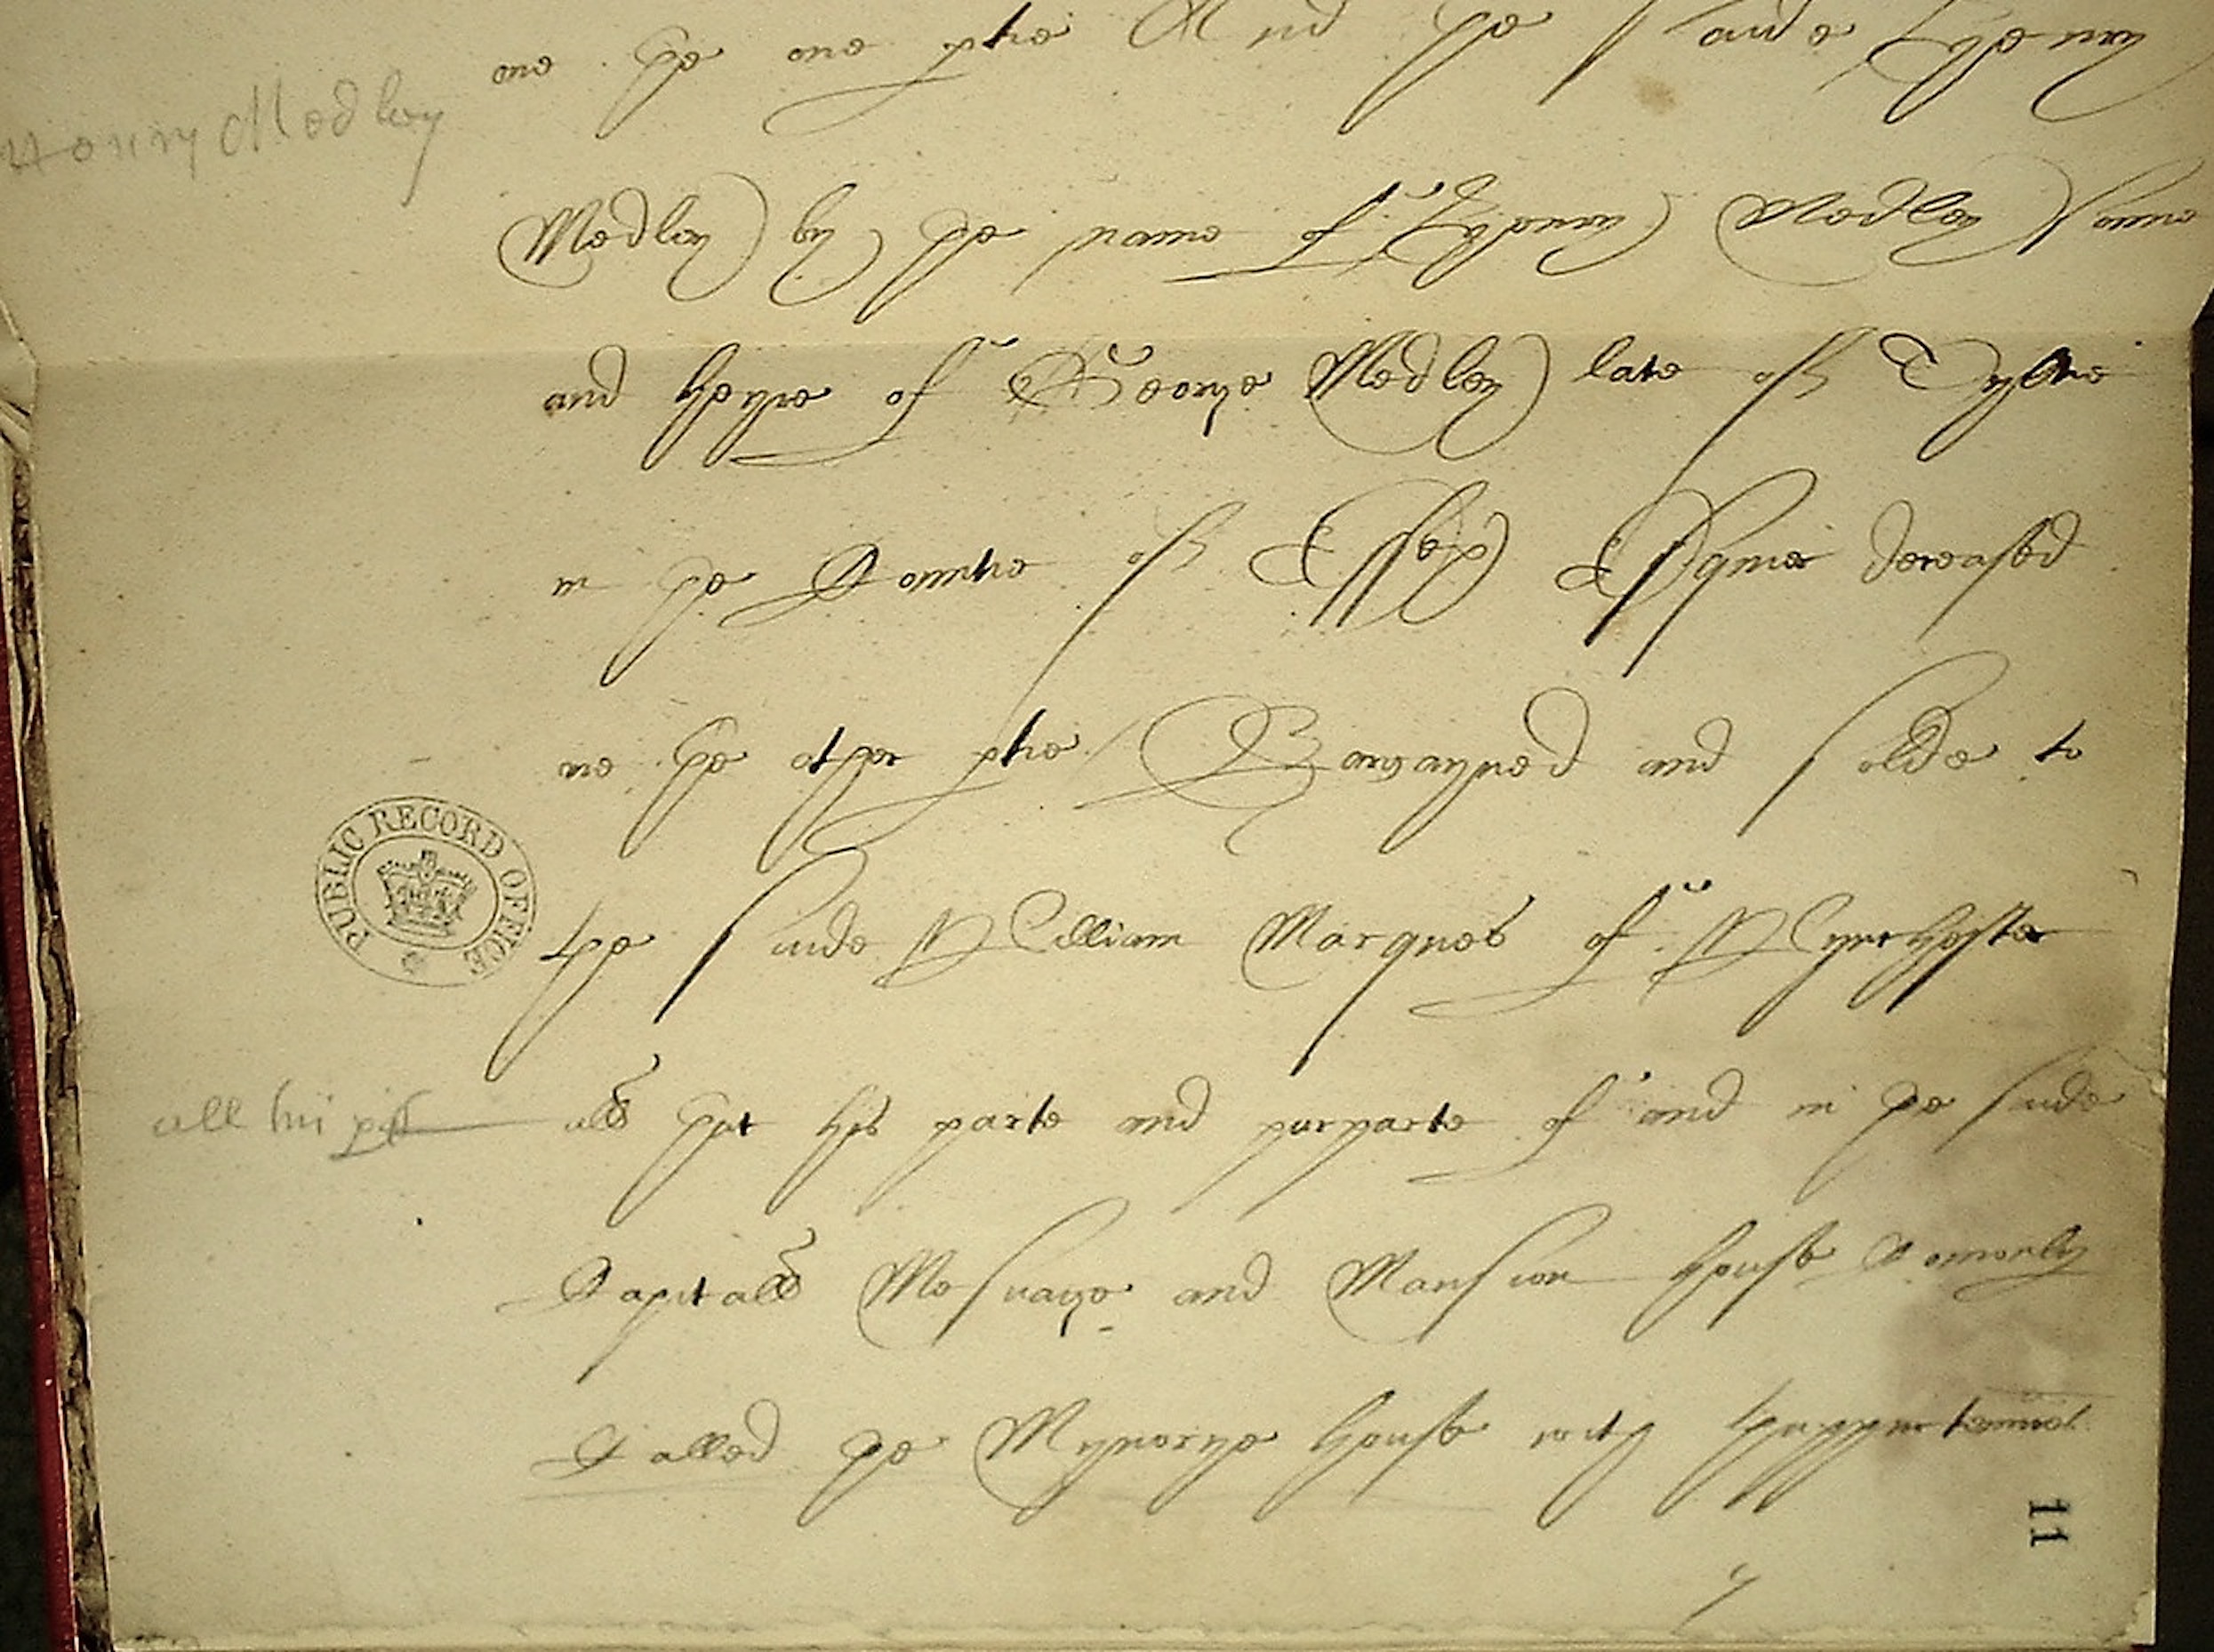 one the one ptie And the saide Henry
Henry Medley
Medley by the name of Henry Medley sonne
and heyre of George Medley late of Tyltie
in the Countie of Essex Esquier deceased
one the other ptie Bargayned and solde to
the saide William Marques of Wynchester
PUBLIC RECORD OFFICE
all his pt
all that his parte and purparte of and in the saide
Capitall Mesuage and Mansion house Comonly
Called the Mynorye house with thappurtennces
11